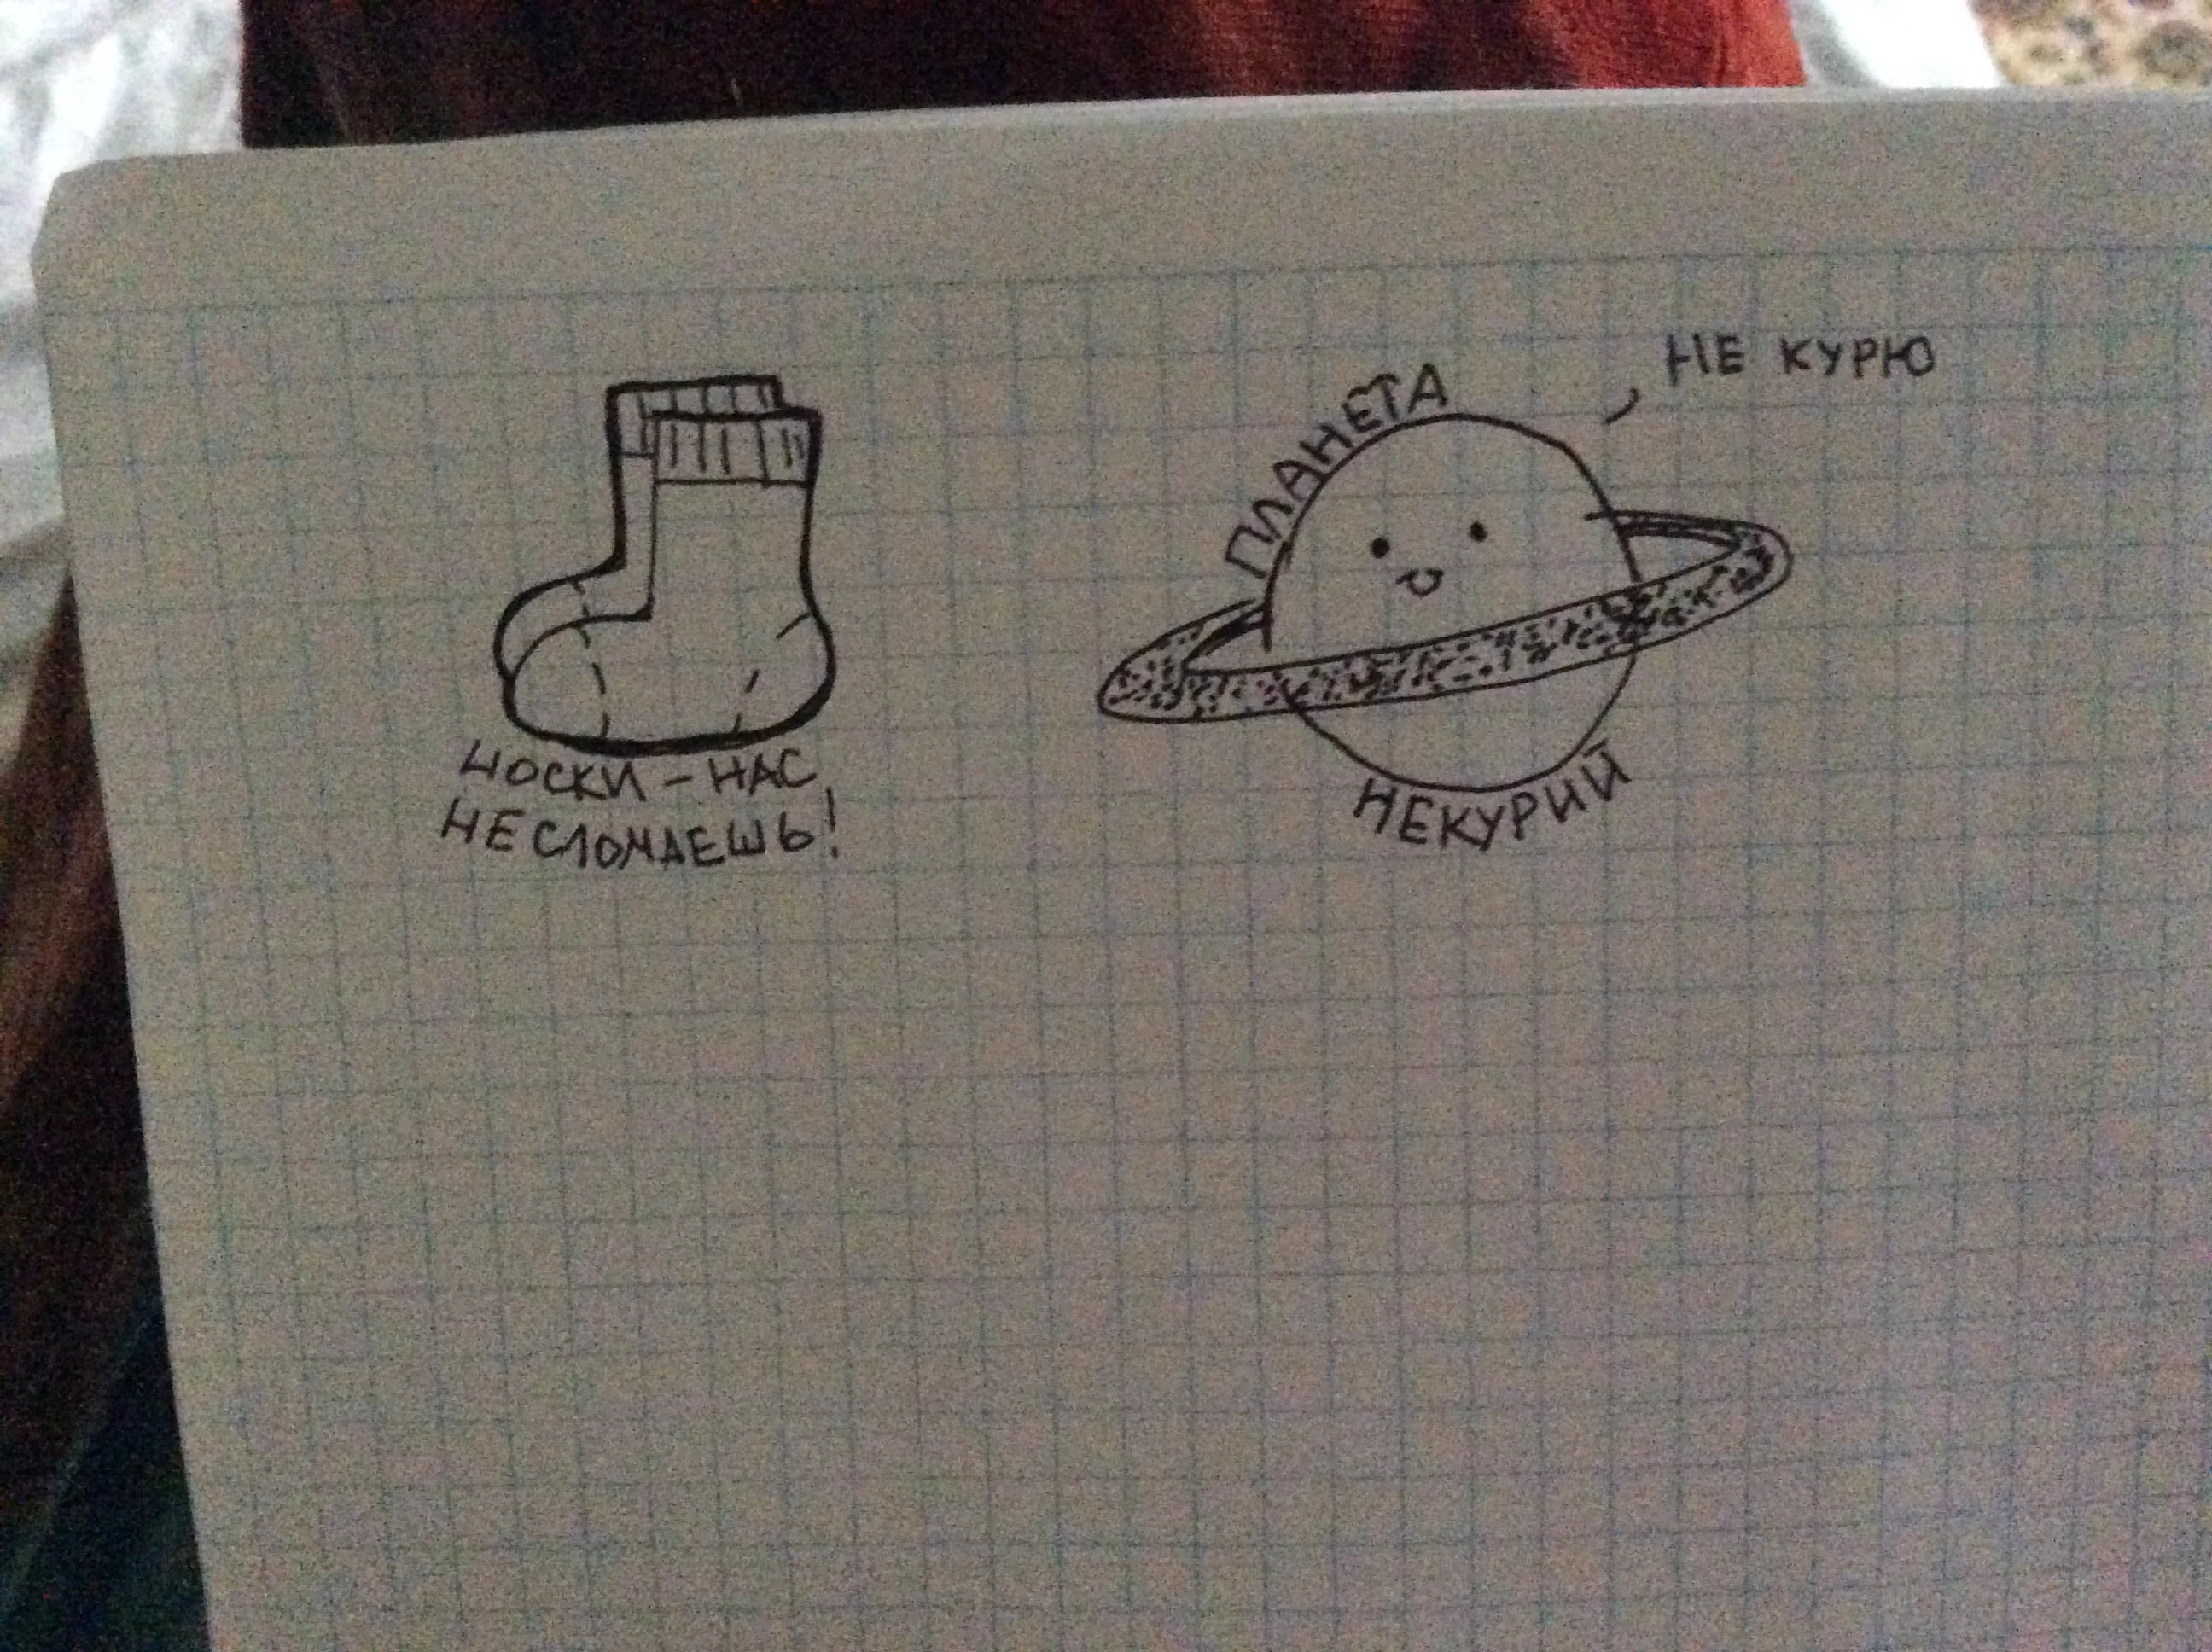 НОСКИ - НАС
НЕ СЛОМАЕШЬ!
ПЛАНЕТА
НЕ КУРЮ
НЕКУРИЙ